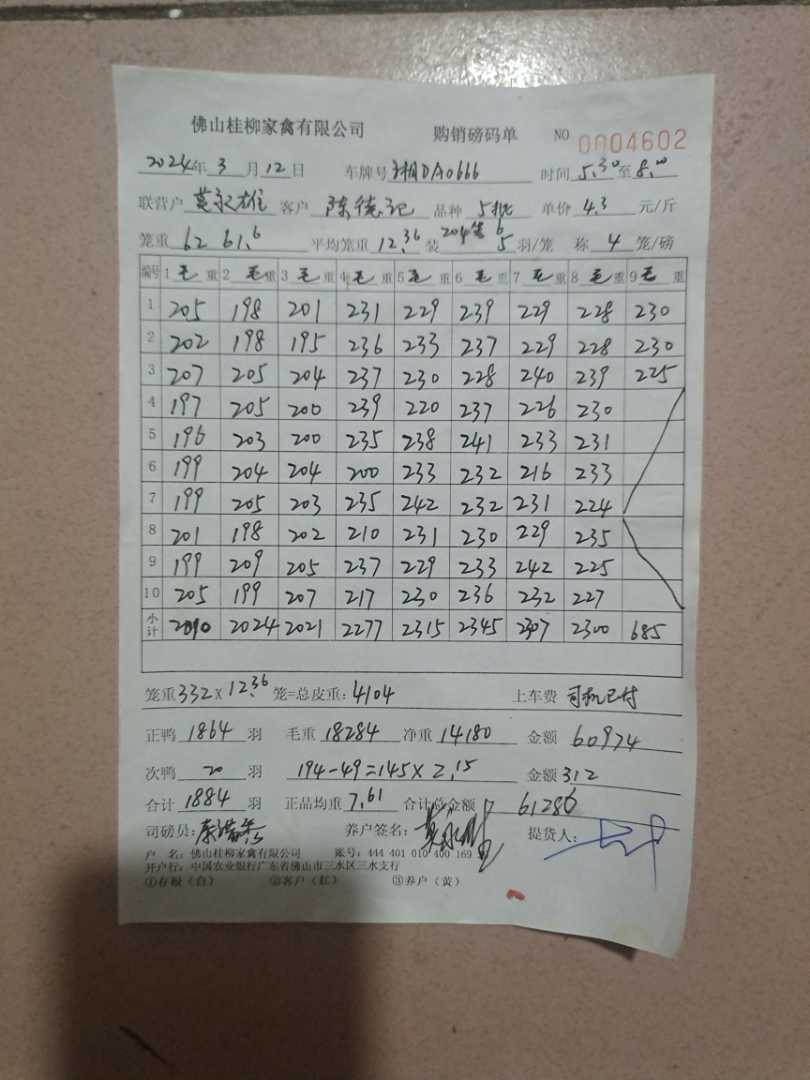 佛山桂柳家禽有限公司 购销磅码单 NO 0004602
2024年 3 月 12 日 车牌号 湘DA0666 时间 5.30 至 8.00
联营户 莫永雄 客户 陈德记 品种 5批 单价 4.3 元/斤
笼重 62 61.6 平均笼重 12.36 装 204笼6 5 羽/笼 称 4 笼/磅
编号 1 毛 重 2 毛 重 3 毛 重 4 毛 重 5 毛 重 6 毛 重 7 毛 重 8 毛 重 9 毛 重
1 205 198 201 231 229 239 229 228 230
2 202 198 195 236 233 237 229 228 230
3 207 205 204 237 230 228 240 239 225
4 197 205 200 239 220 237 226 230
5 196 203 200 235 238 241 233 231
6 199 204 204 200 233 232 216 233
7 199 205 203 235 242 232 231 224
8 201 198 202 210 231 230 229 235
9 199 209 205 237 229 233 242 225
10 205 199 207 217 230 236 232 227
小计 2010 2024 2021 2277 2315 2345 2307 2300 685
笼重 332 x 12.36 笼=总皮重: 4104 上车费 司机已付
正鸭 1864 羽 毛重 18284 净重 14180 金额 60974
次鸭 20 羽 194-49=145×2.15 金额 312
合计 1884 羽 正品均重 7.61 合计总金额 61286
司磅员: 养户签名: 提货人:
户 名: 佛山桂柳家禽有限公司 账号: 444 401 010 400 169
开户行: 中国农业银行广东省佛山市三水区三水支行
①存根（白） ②客户（红） ③养户（黄）